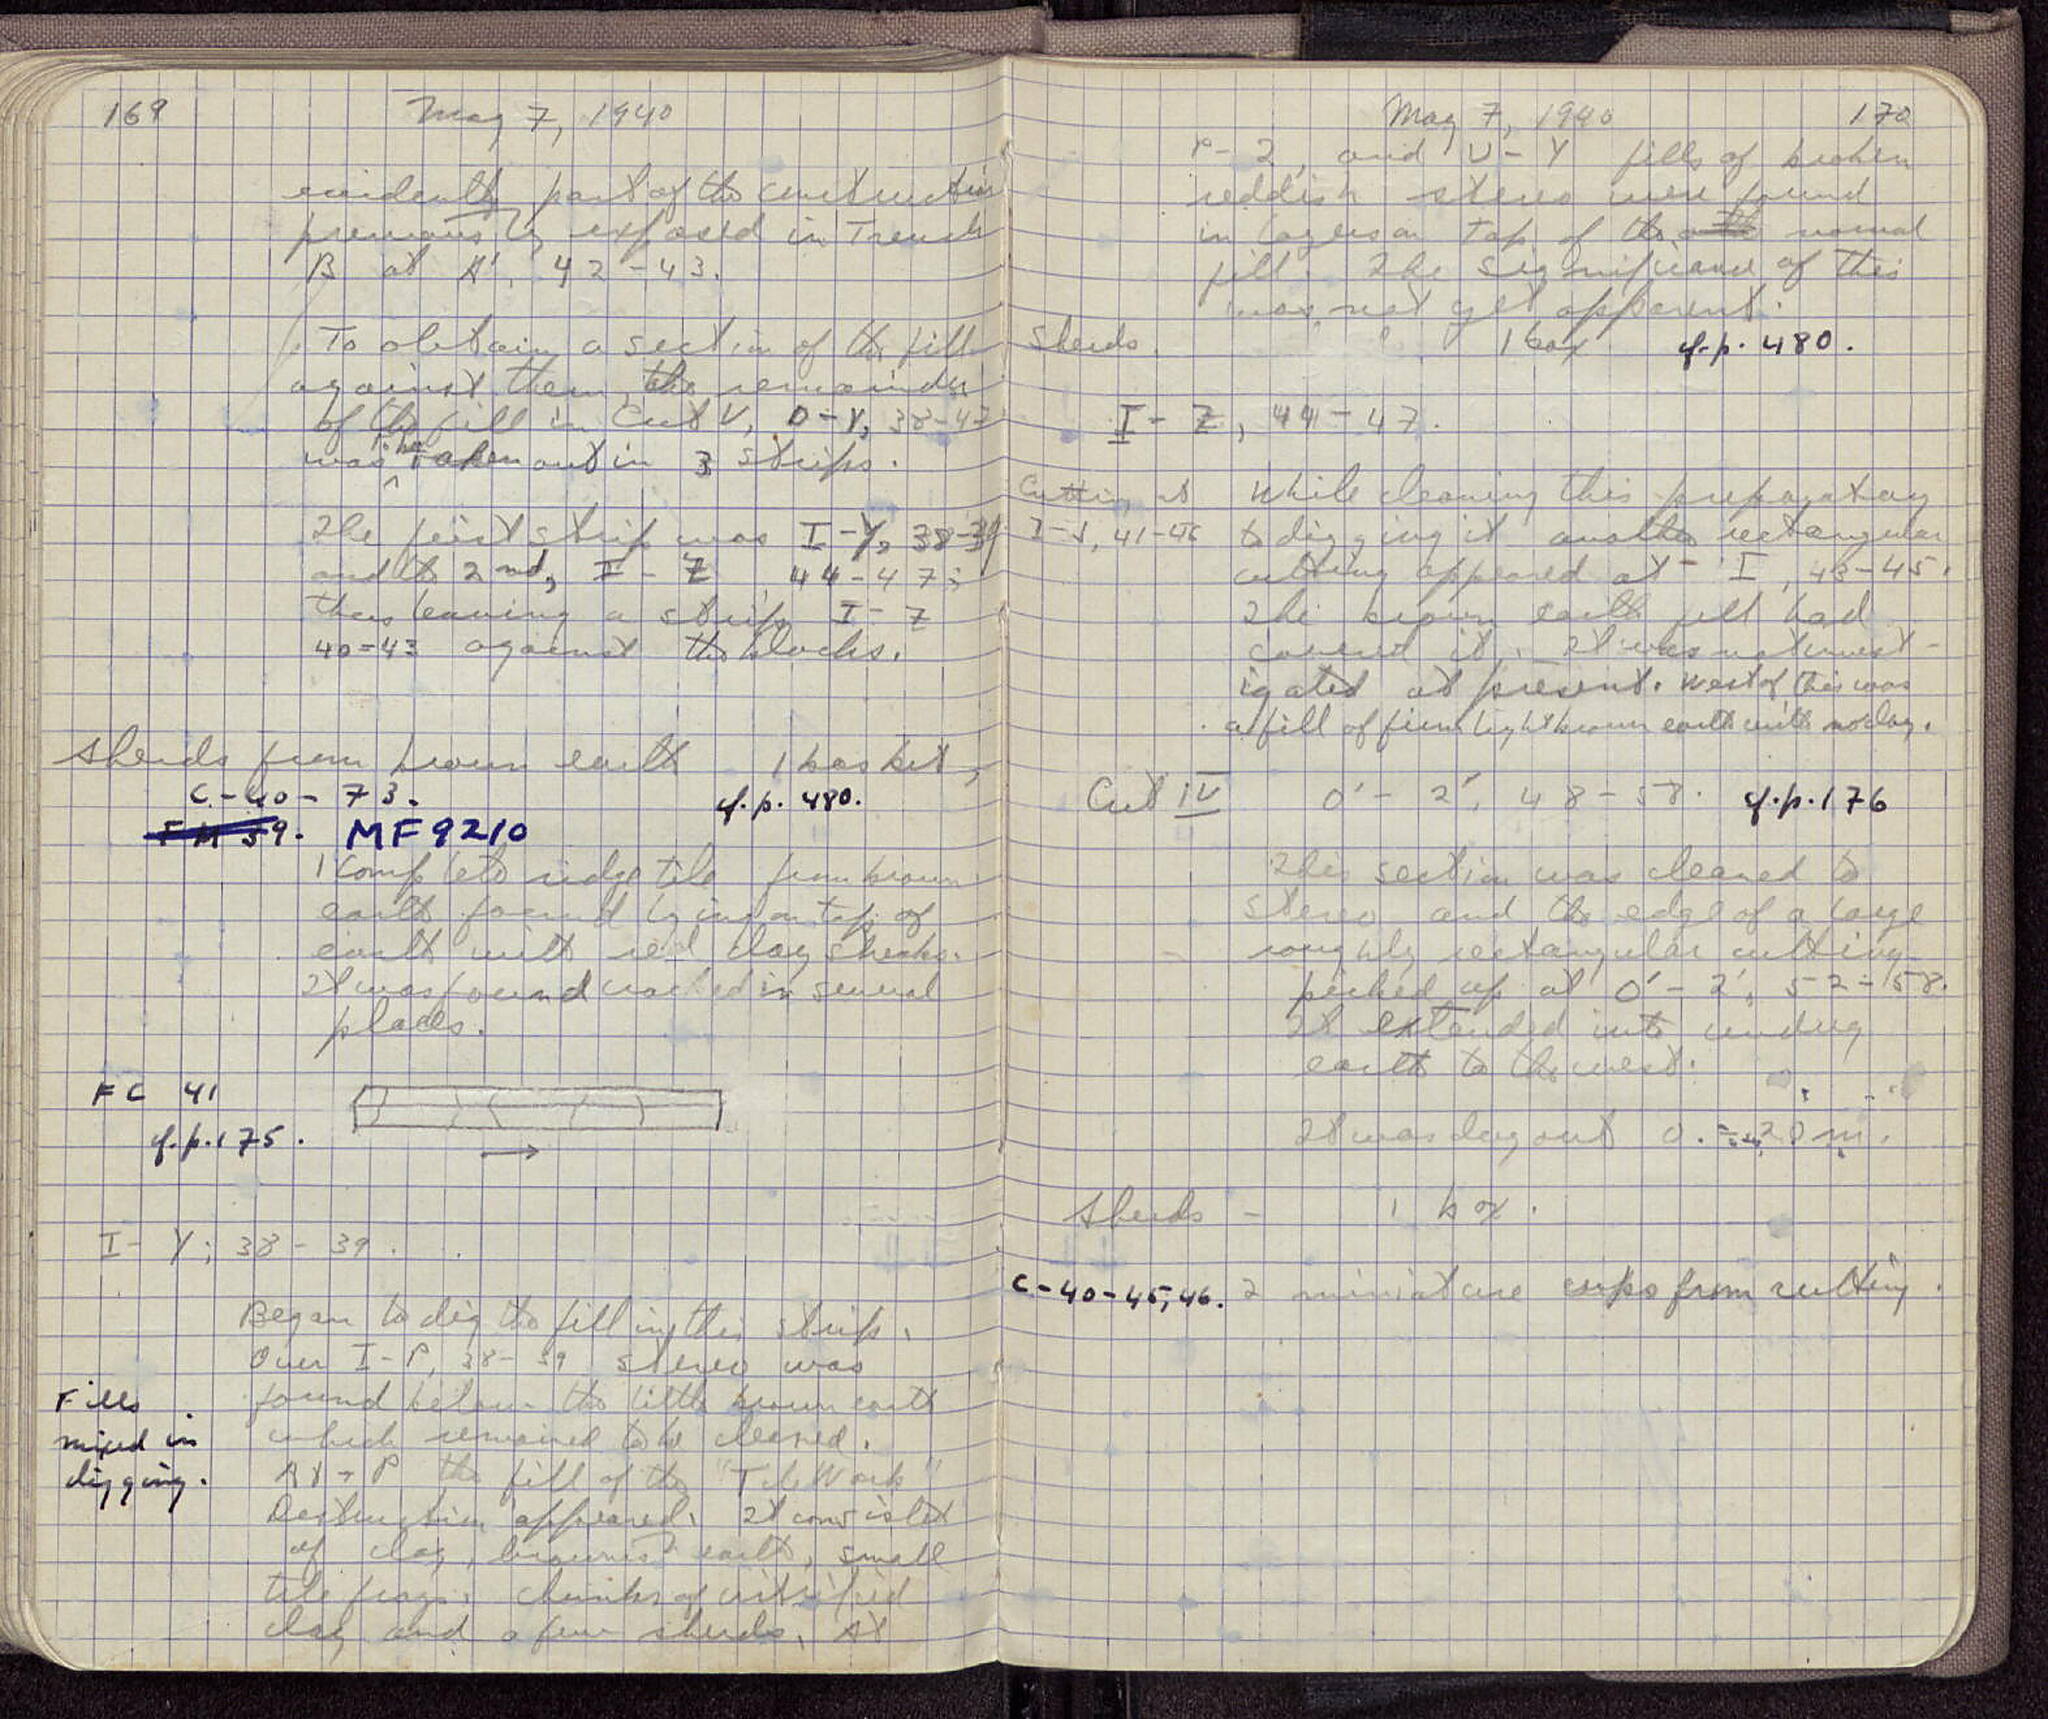 169 May 7, 1940
evidently part of the construction
previously exposed in Trench
B at A', 42-43.
To obtain a section of the fill
against them, the remainder
of the fill in Cut V, O-Y, 38-47
was then taken out in 3 strips.
The first strip was I-Y, 38-39
and the 2nd, I-Z 44-47;
thus leaving a strip I-Z
40-43 against the blocks.
Sherds from brown earth 1 basket,
C-40-73. cf. p. 480.
FM 59. MF 9210
1 complete ridge tile from brown
earth found lying on top of
earth with red clay
It was found cracked in several
places.
FC 41
cf. p. 175.
I-Y; 38-39.
Began to dig the fill in this strip.
Over I-P, 38-39 stereo was
Fills
mixed in
digging.
found below the little brown earth
which remained to be cleaned.
At P the fill of the "Tile Work"
Destruction appeared. It consisted
of clay, brownish earth, small
tile frags. chunks of vitrified
clay and a few sherds. At
May 7, 1940 170
P-2, and U-Y fills of broken
reddish stereo were found
in layers on top of the normal
fill. The significance of this
was not yet apparent.
Sherds. 1 box cf. p. 480.
I-Z, 44-47.
Cutting at
I-J, 41-46
While cleaning this preparatory
to digging it another rectangular
cutting appeared at I, 43-45.
The brown earth fill had
covered it. It was not invest-
igated at present. West of this was
a fill of firm light brown earth with no clay.
Cut IV O'-2', 48-58. cf. p. 176
This section was cleaned to
stereo and the edge of a large
roughly rectangular cutting
picked up at O'-2', 52-58.
It extended into undug
earth to the west.
It was dug out 0. 20 m.
Sherds - 1 box.
C-40-45, 46. 2 miniature cups from cutting.